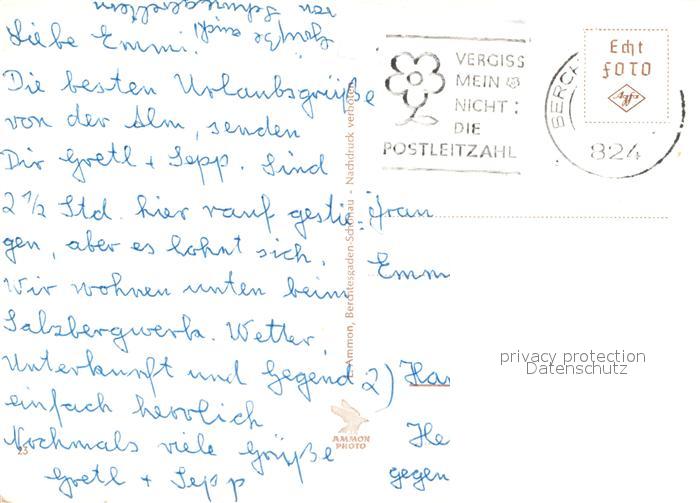 Liebe Emmi!
Die besten Urlaubsgrüße
von der Alm, senden
Dir Gretl + Sepp. Sind
2 1/2 Std. hier rauf gestie-
gen, aber es lohnt sich.
Wir wohnen unten beim
Salzbergwerk. Wetter,
Unterkunft und Gegend
einfach herrlich
Nochmals viele Grüße
Gretl + Sepp
Gruß
auch
von
L. Ammon, Berchtesgaden-Schönau - Nachdruck verboten
AMMON
PHOTO
VERGISS
MEIN
NICHT:
DIE
POSTLEITZAHL
BERCH
824
Echt
FOTO
Agfa
Frau
Emm
2) Ha
He
gegen
privacy protection
Datenschutz